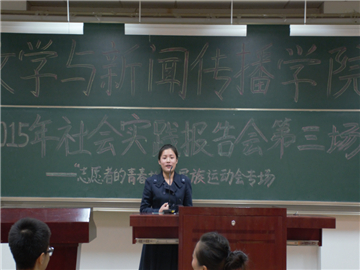 文学与新闻传播学院
2015年社会实践报告会第三场
——"志愿者的青春 民族运动会专场